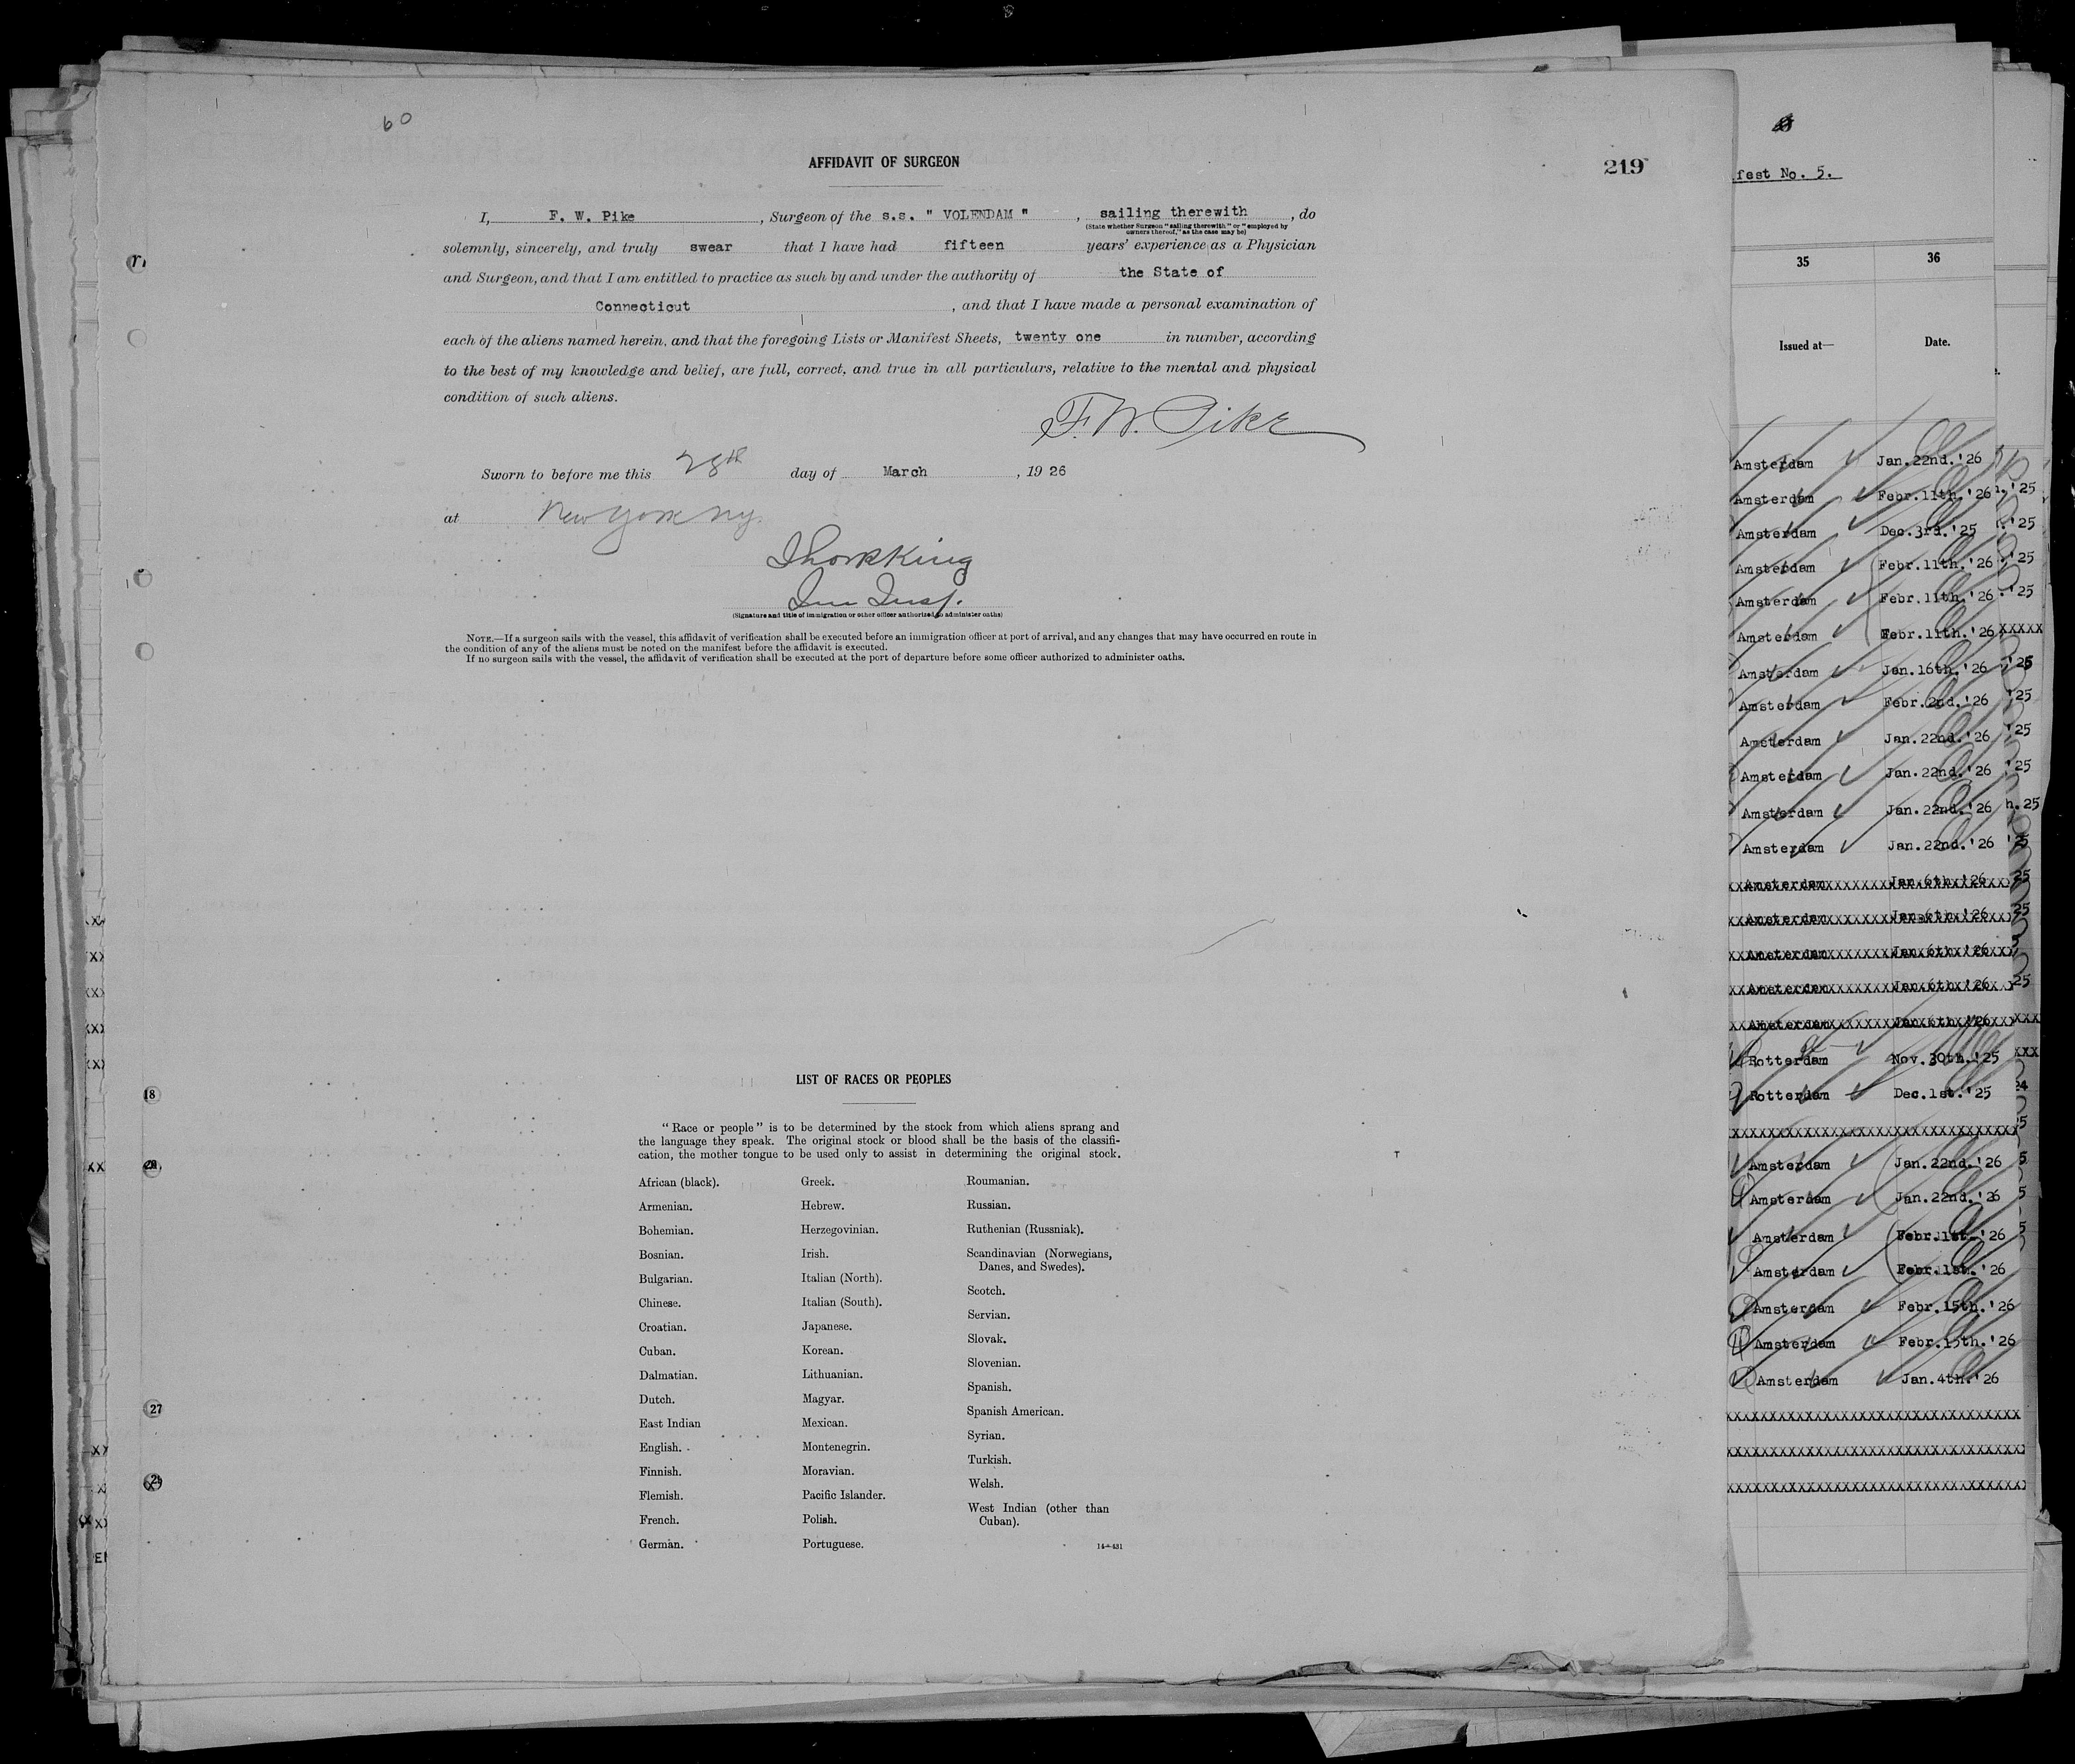 60
AFFIDAVIT OF SURGEON
219
I, F. W. Pike, Surgeon of the s.s. " VOLENDAM ", sailing therewith, do
(State whether Surgeon "sailing therewith" or "employed by
owners thereof," as the case may be)
solemnly, sincerely, and truly swear that I have had fifteen years' experience as a Physician
and Surgeon, and that I am entitled to practice as such by and under the authority of the State of
Connecticut, and that I have made a personal examination of
each of the aliens named herein, and that the foregoing Lists or Manifest Sheets, twenty one in number, according
to the best of my knowledge and belief, are full, correct, and true in all particulars, relative to the mental and physical
condition of such aliens.
F. W. Pike
Sworn to before me this 28th day of March, 19 26
at New York NY.
King
Im Insp.
(Signature and title of immigration or other officer authorized to administer oaths)
NOTE.—If a surgeon sails with the vessel, this affidavit of verification shall be executed before an immigration officer at port of arrival, and any changes that may have occurred en route in
the condition of any of the aliens must be noted on the manifest before the affidavit is executed.
If no surgeon sails with the vessel, the affidavit of verification shall be executed at the port of departure before some officer authorized to administer oaths.
LIST OF RACES OR PEOPLES
"Race or people" is to be determined by the stock from which aliens sprang and
the language they speak. The original stock or blood shall be the basis of the classifi-
cation, the mother tongue to be used only to assist in determining the original stock.
African (black).
Armenian.
Bohemian.
Bosnian.
Bulgarian.
Chinese.
Croatian.
Cuban.
Dalmatian.
Dutch.
East Indian
English.
Finnish.
Flemish.
French.
German.
Greek.
Hebrew.
Herzegovinian.
Irish.
Italian (North).
Italian (South).
Japanese.
Korean.
Lithuanian.
Magyar.
Mexican.
Montenegrin.
Moravian.
Pacific Islander.
Polish.
Portuguese.
Roumanian.
Russian.
Ruthenian (Russniak).
Scandinavian (Norwegians,
Danes, and Swedes).
Scotch.
Servian.
Slovak.
Slovenian.
Spanish.
Spanish American.
Syrian.
Turkish.
Welsh.
West Indian (other than
Cuban).
14—431
18
27
fest No. 5.
35 36
Issued at— Date.
Amsterdam Jan.22nd.'26
Amsterdam Febr.11th.'26
Amsterdam Dec.3rd.'25
Amsterdam Febr.11th.'26
Amsterdam Febr.11th.'26
Amsterdam Febr.11th.'26
Amsterdam Jan.16th.'26
Amsterdam Febr.2nd.'26
Amsterdam Jan.22nd.'26
Amsterdam Jan.22nd.'26
Amsterdam Jan.22nd.'26
Amsterdam Jan.22nd.'26
Amsterdam Jan.6th.'26
Amsterdam Jan.6th.'26
Amsterdam Jan.6th.'26
Amsterdam Jan.6th.'26
Amsterdam Jan.6th.'26
Rotterdam Nov.30th.'25
Rotterdam Dec.1st.'25
Amsterdam Jan.22nd.'26
Amsterdam Jan.22nd.'26
Amsterdam Febr.1st.'26
Amsterdam Febr.1st.'26
Amsterdam Febr.15th.'26
Amsterdam Febr.15th.'26
Amsterdam Jan.4th.'26